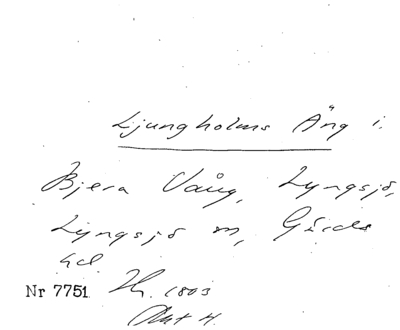 Ljungholms Äng i.
Bjera Vång, Lyngsjö,
Lyngsjö sn, Gärds
hd
Nr 7751 Hr. 1803
Akt 4.